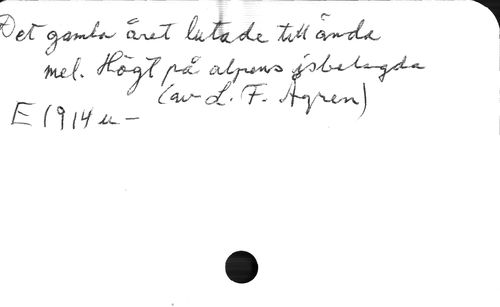 Det gamla året lutade till ända
mel. Högt på alpens isbelagda
(av L. F. Ågren)
E 1914 u -